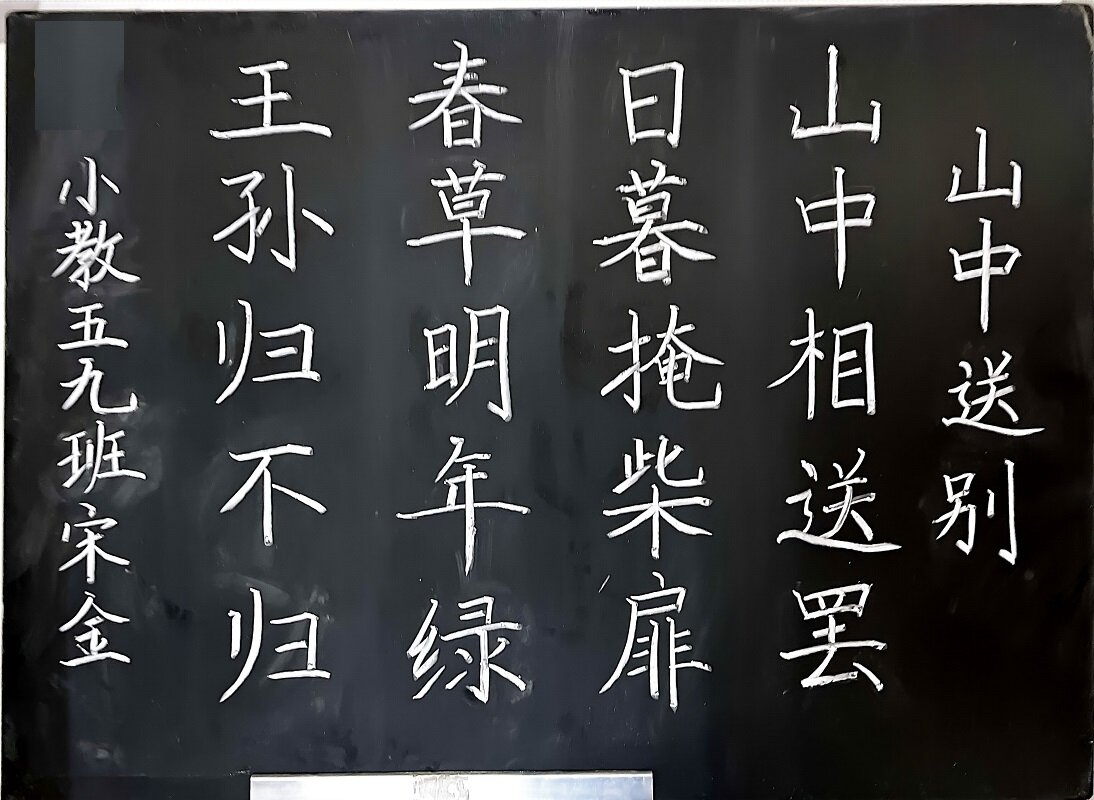 山中送别
山中相送罢
日暮掩柴扉
春草明年绿
王孙归不归
小教五九班宋金